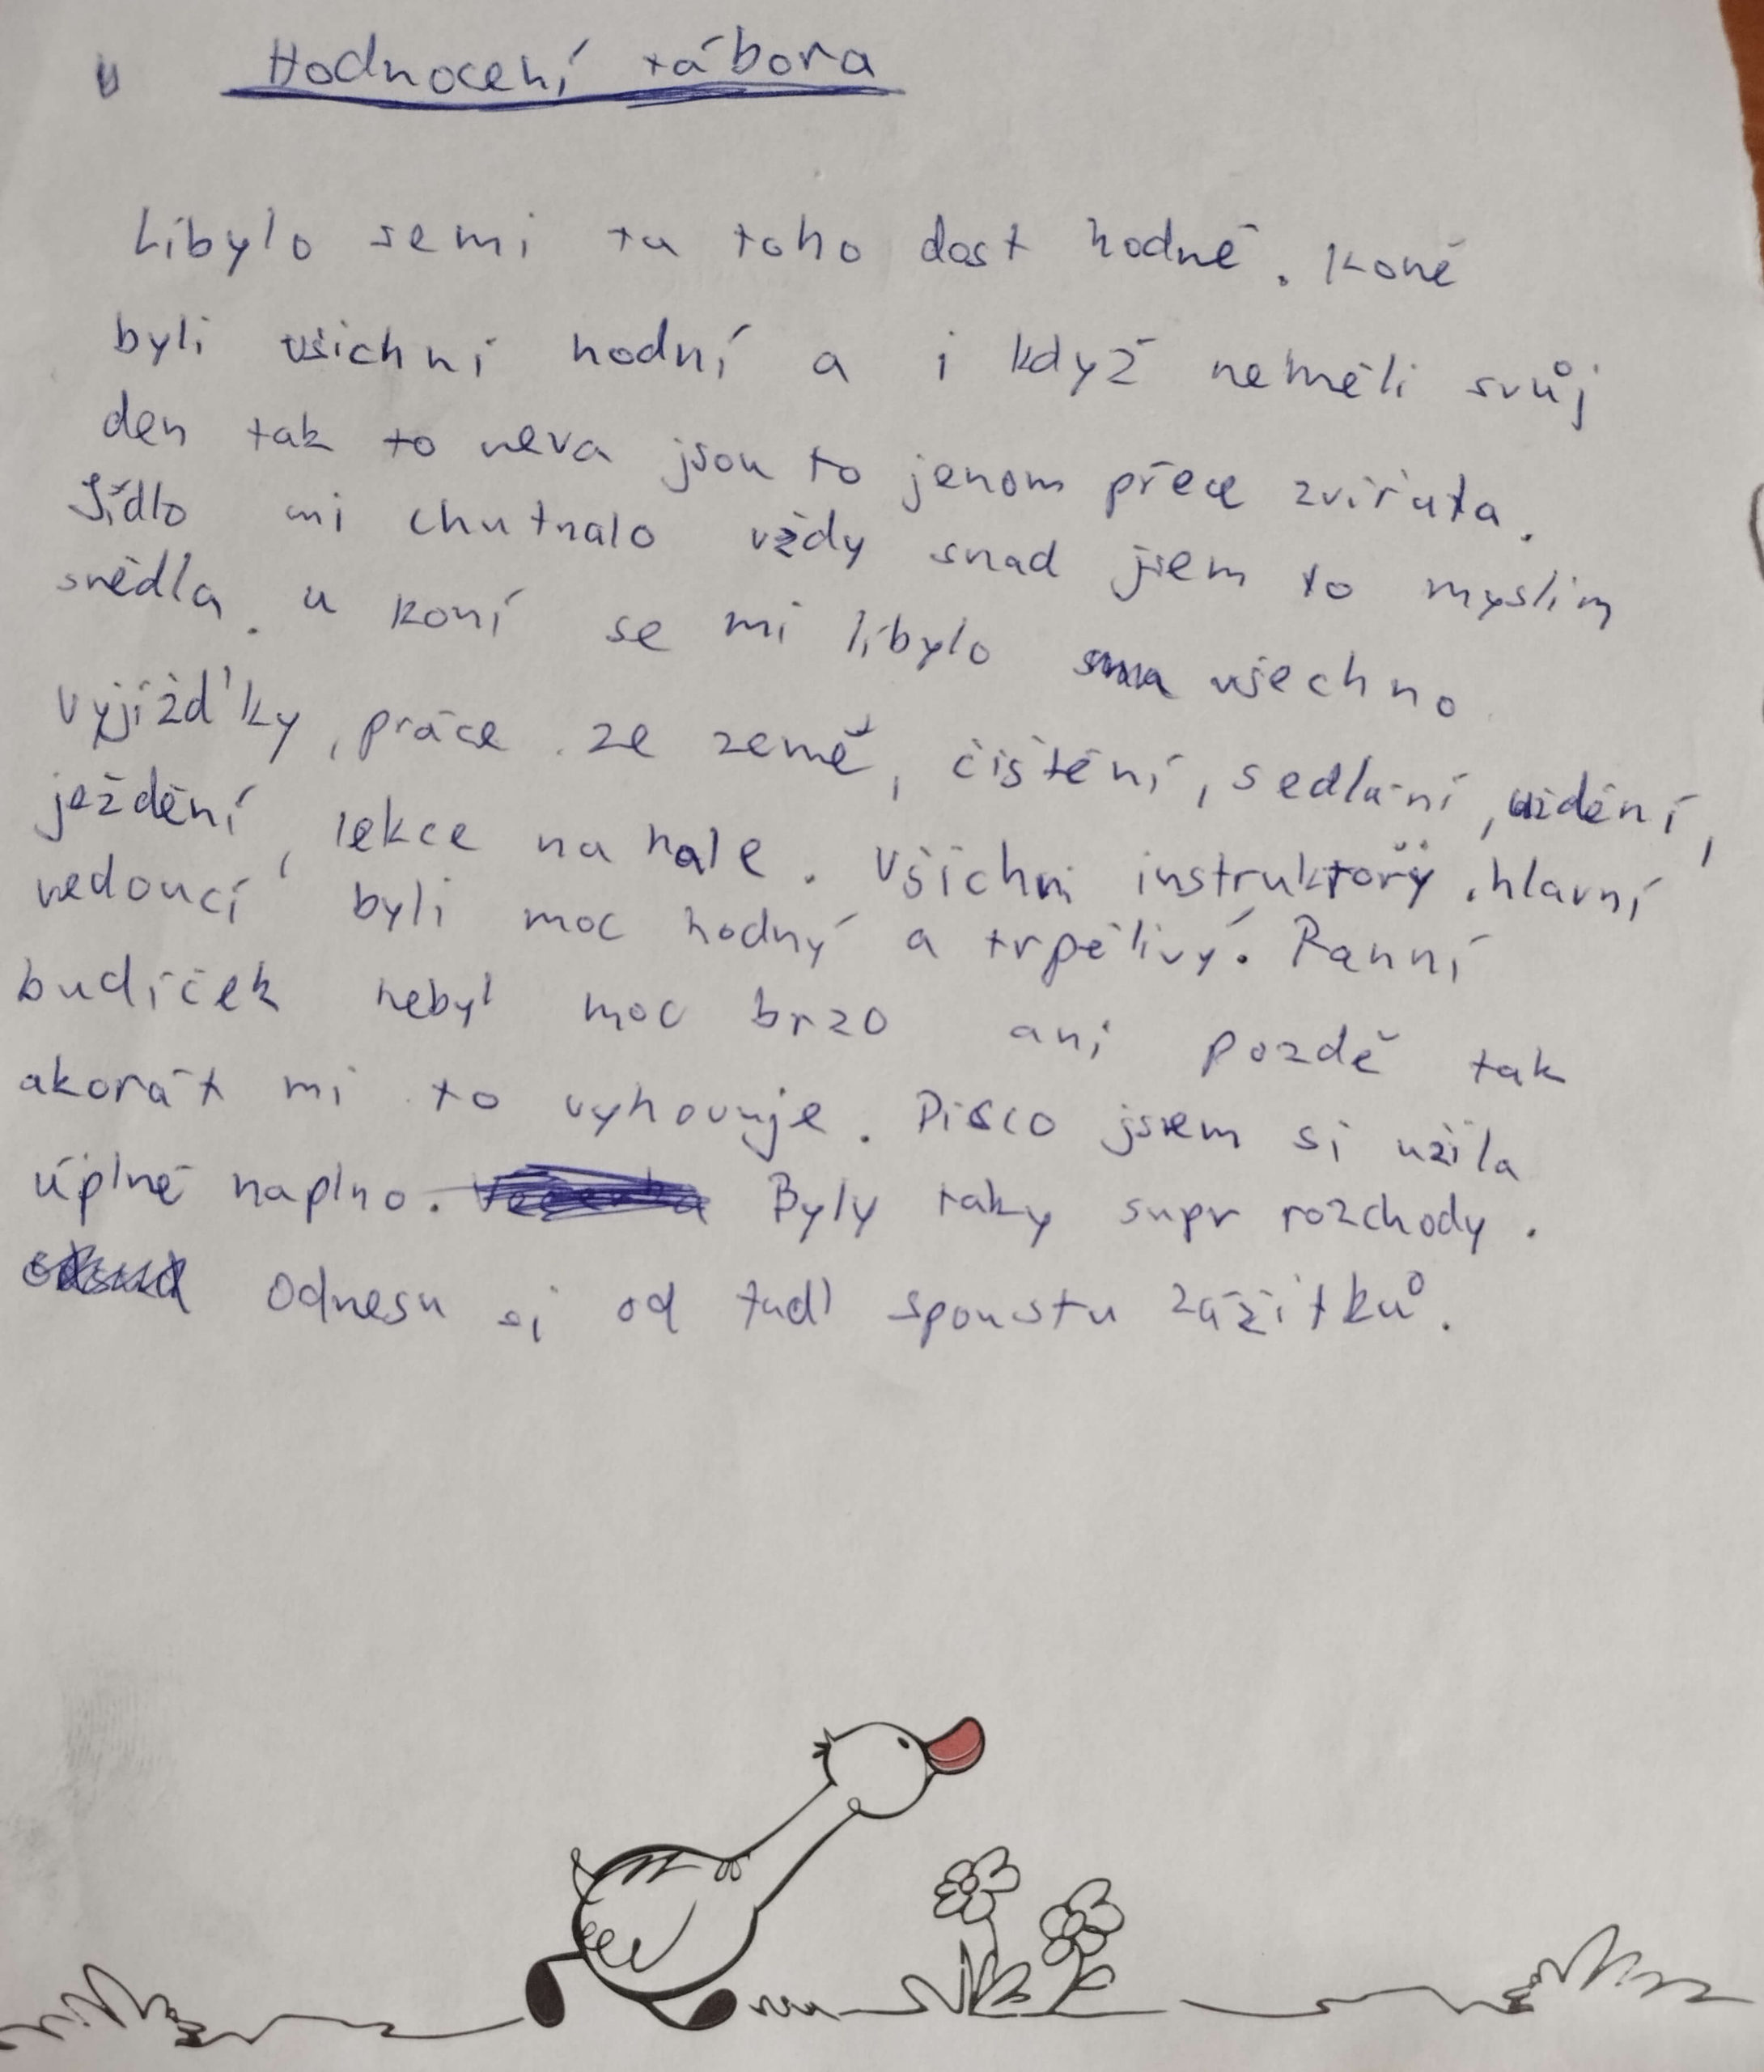 Hodnocení tábora
Líbylo semi tu toho dost hodně. Koně
byli všichni hodní a i když neměli svůj
den tak to neva jsou to jenom přece zvířata.
Jídlo mi chutnalo vždy snad jsem to myslim
snědla. u koní se mi líbylo všechno
vyjížďky, práce ze země, čištění, sedlání, uždění,
ježdění, lekce na hale. Všichni instruktoři, hlavní
vedoucí byli moc hodný a trpělivý. Ranní
budíček nebyl moc brzo ani pozdě tak
akorát mi to vyhovuje. Disco jsem si užila
úplně naplno. Byly taky supr rozchody.
Odnesu si od tud spoustu zážitků.